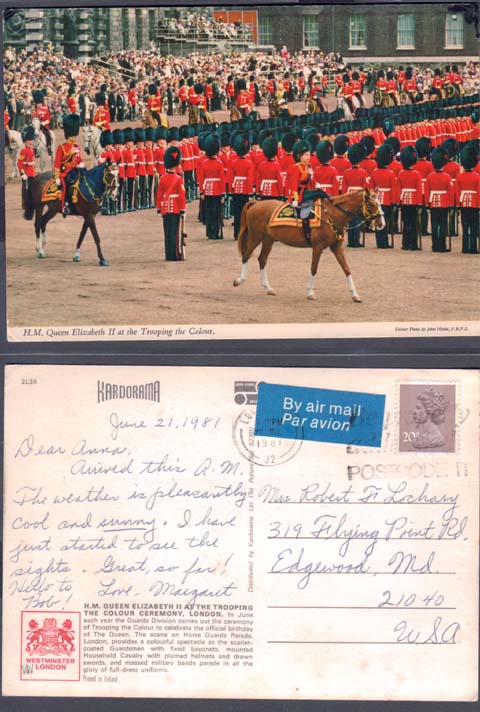 H.M. Queen Elizabeth II at the Trooping the Colour.
Colour Photo by John Hinde, F.R.P.S.
2L39
KARDORAMA
By air mail
Par avion
1981
20P
POSTCODE IT
June 21, 1981
Dear Anna,
Arrived this A.M.
The weather is pleasantly
cool and sunny. I have
just started to see the
sights. Great, so far!
Hello to Love, Margaret
Bob!
Mrs. Robert F. Lochary
319 Flying Point Rd.
Edgewood, Md.
21040
USA
Distributed by Kardorama Ltd.
H.M. QUEEN ELIZABETH II AT THE TROOPING
THE COLOUR CEREMONY, LONDON. In June
each year the Guards Division carries out the ceremony
of Trooping the Colour to celebrate the official birthday
of The Queen. The scene on Horse Guards Parade,
London, provides a colourful spectacle as the scarlet-
coated Guardsmen with fixed bayonets, mounted
Household Cavalry with plumed helmets and drawn
swords, and massed military bands parade in all the
glory of full-dress uniforms.
Printed in Ireland
WESTMINSTER
LONDON